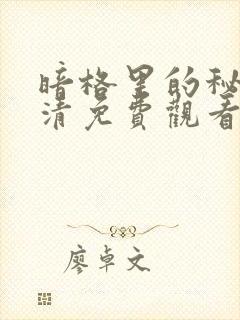 暗格里的秘
清免費觀看
廖卓文